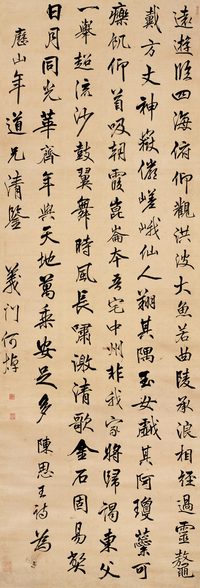 遠遊臨四海俯仰觀洪波大魚若曲陵承浪相經過靈鼇
戴方丈神嶽儼嵯峨仙人翔其隅玉女戲其阿瓊蘂可
療飢仰首吸朝霞崑崙本吾宅中州非我家將歸謁東父
一舉超流沙鼓翼舞時風長嘯激清歌金石固易獘
日月同光華齊年與天地萬乘安足多 陳思王詩為
歷山年道兄清鑒 義門何焯